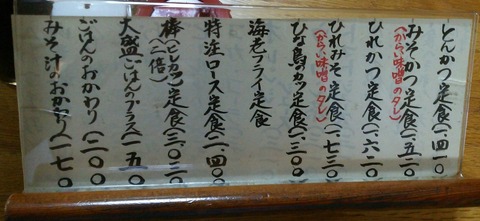 とんかつ定食(一、四一〇)
みそかつ定食(一、五二〇)
(からい味噌のタレ)
ひれかつ定食(一、六二〇)
ひれみそ定食(一、七三〇)
(からい味噌のタレ)
ひな鳥のカツ定食(一、三〇〇)
海老フライ定食
特注ロース定食(二、四〇〇)
棒(ヒレカツ)定食(三、〇二〇)
(二倍)
大盛ごはんのプラス(一五〇)
ごはんのおかわり(二〇〇)
みそ汁のおかわり(一七〇)